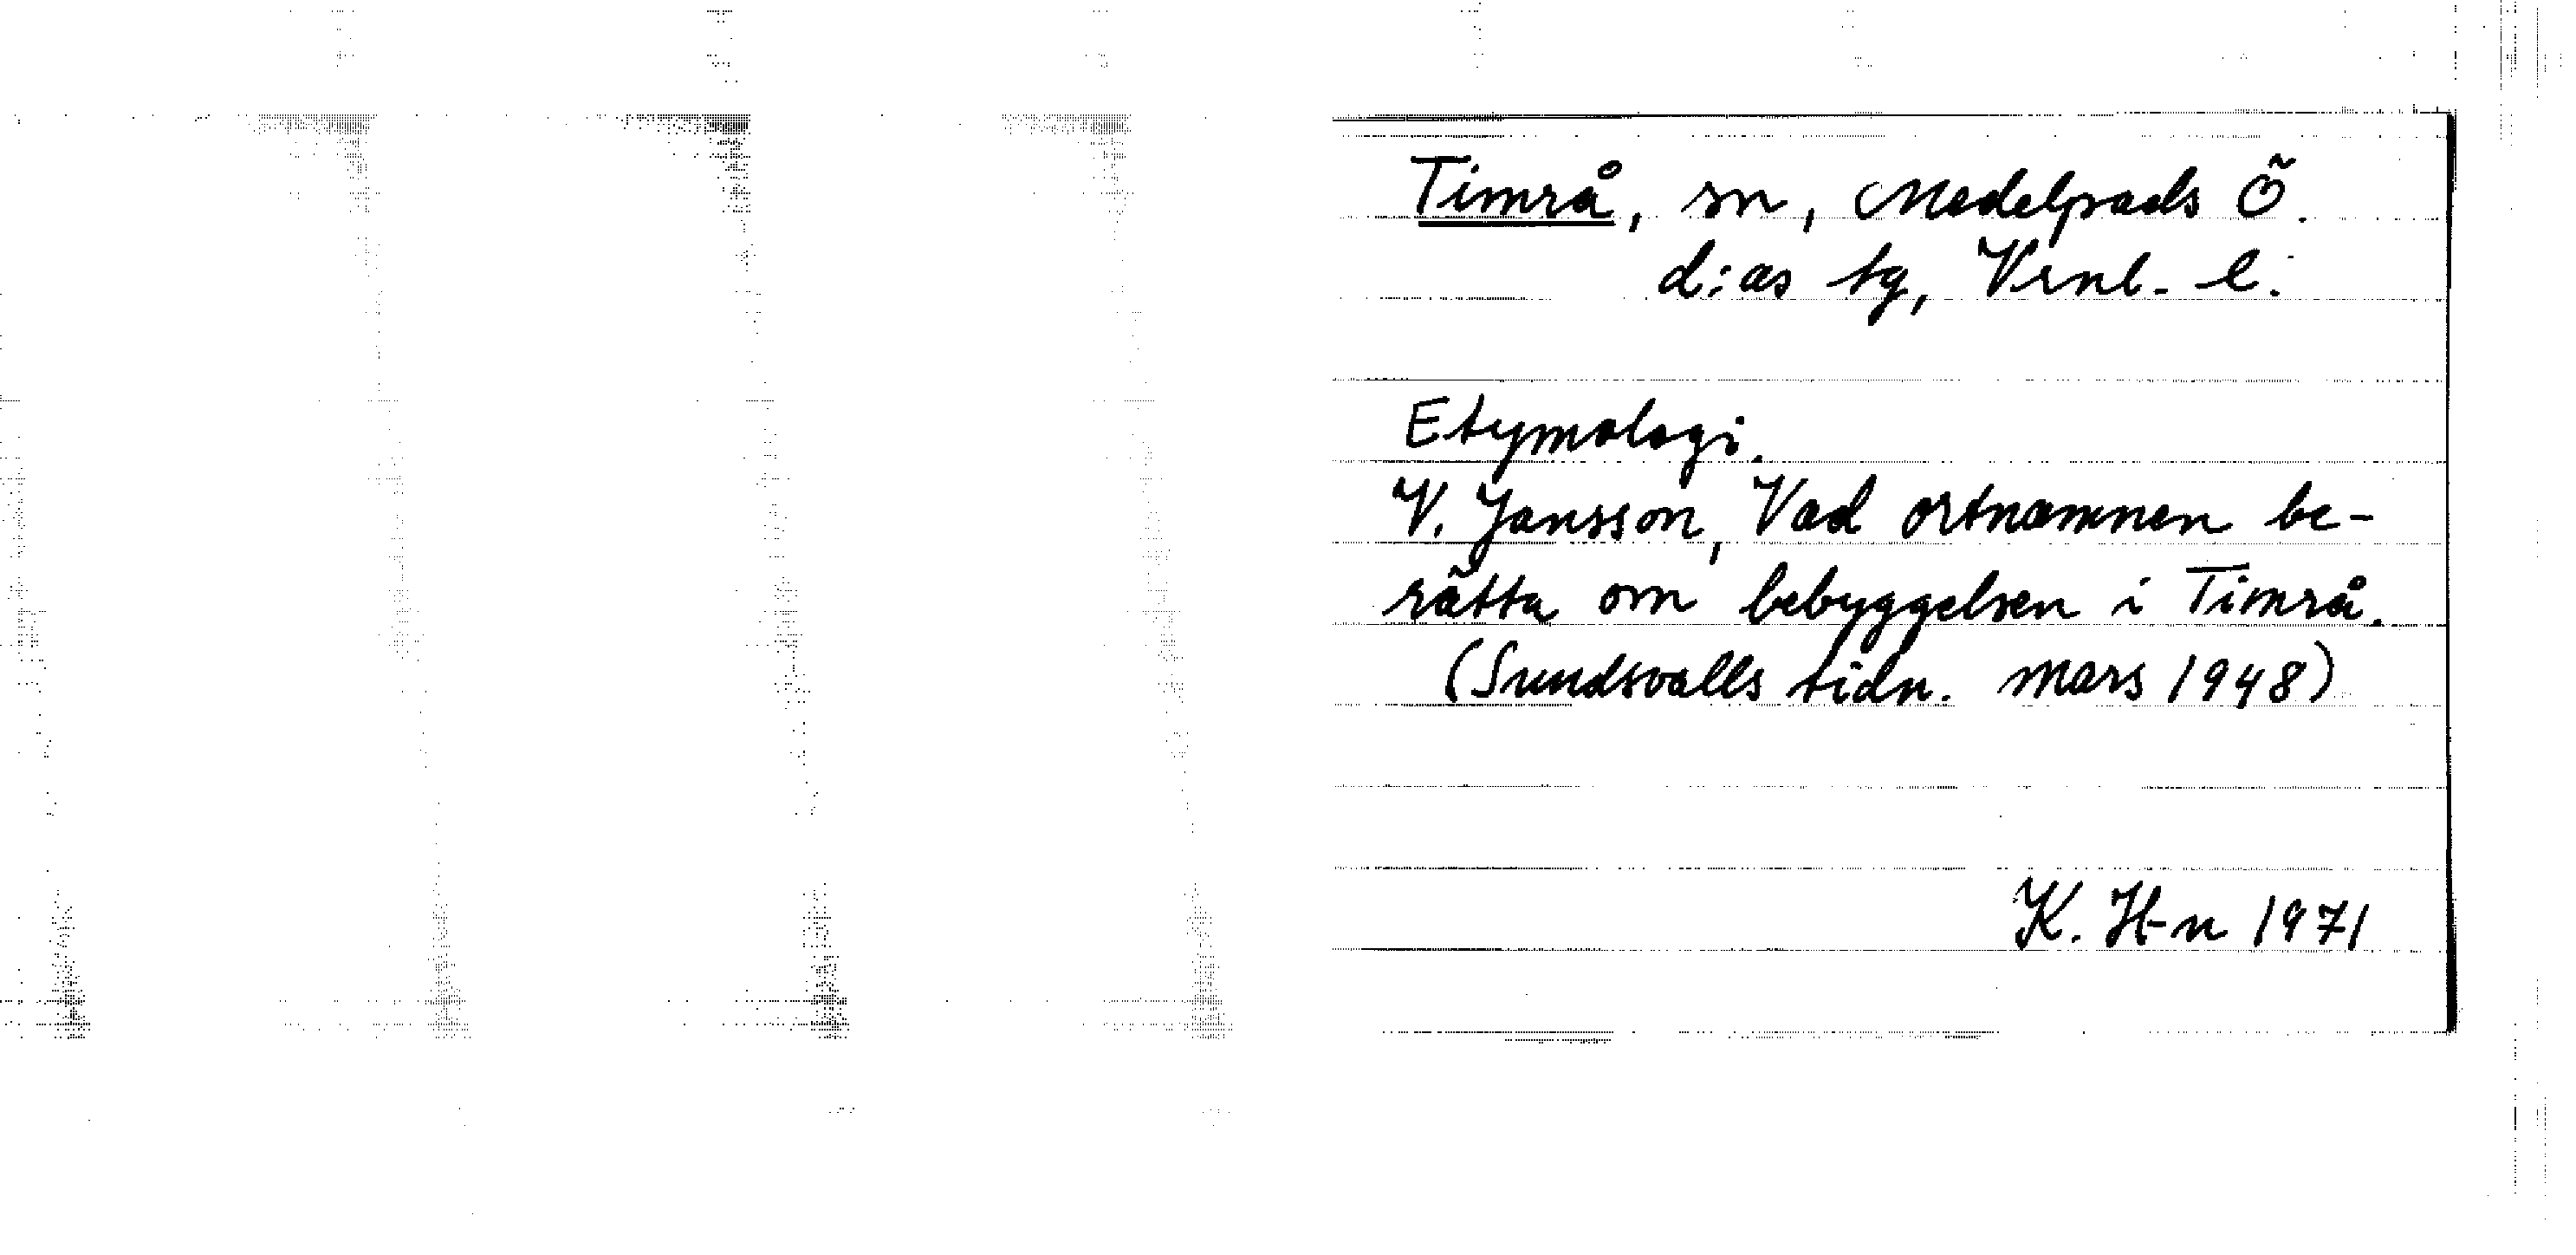 Timrå, sn, Medelpads Ö.
d:as tg, Vrnl. l.
Etymologi.
V. Jansson, Vad ortnamnen be-
rätta om bebyggelsen i Timrå.
(Sundsvalls tidn. mars 1948)
K. H-n 1971